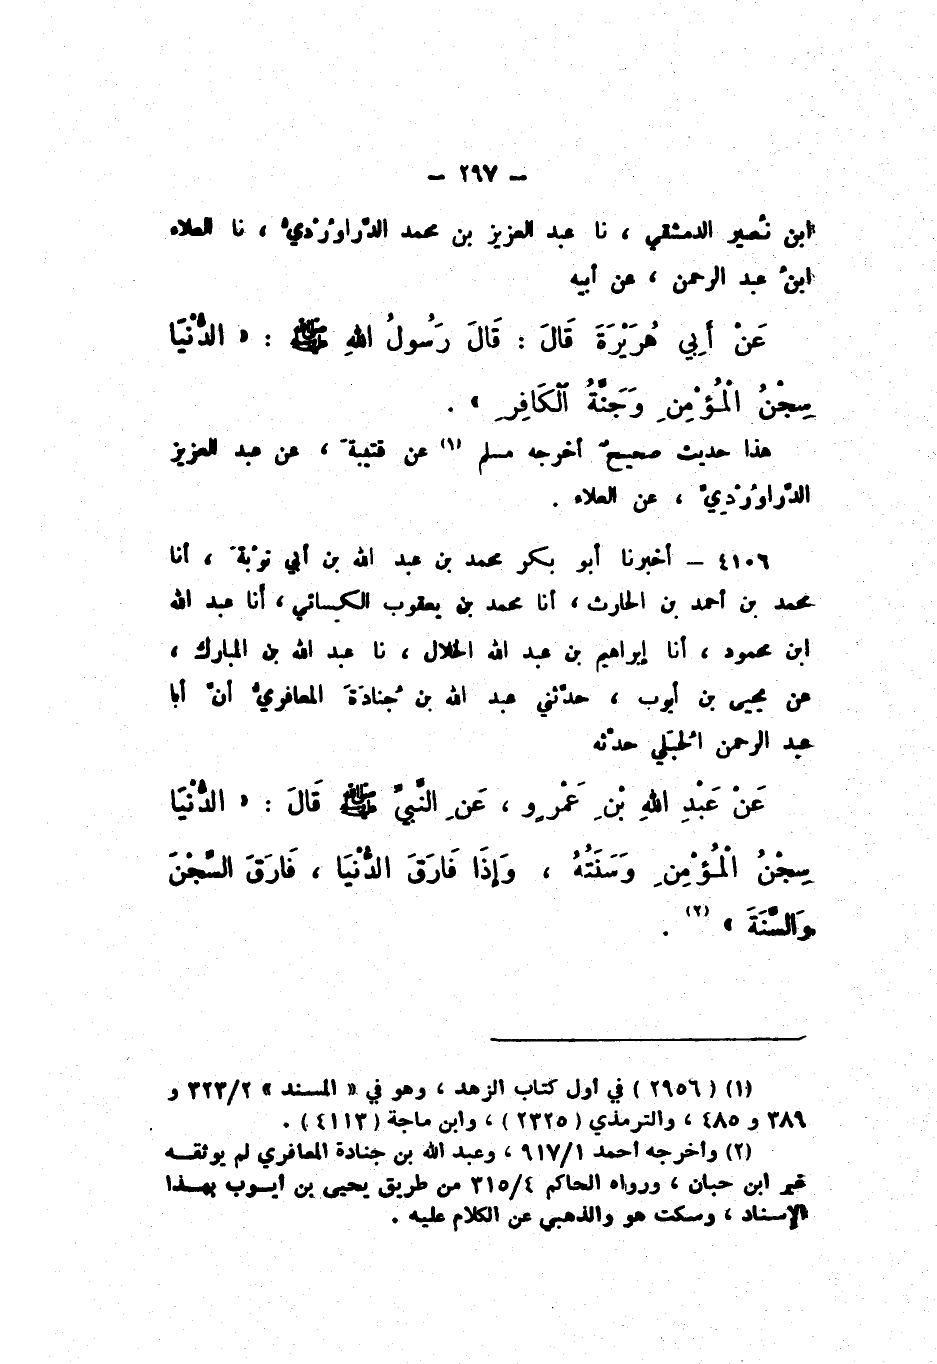 – ٢٩٧ –
ابن نُصير الدمشقي ، نا عبد العزيز بن محمد الدَّراوَرْديُّ ، نا العلاء
ابنُ عبد الرحمن ، عن أبيه
عَنْ أَبِي هُرَيْرَةَ قَالَ : قَالَ رَسُولُ اللهِ ﷺ : « الدُّنْيَا
سِجْنُ الْمُؤْمِنِ وَجَنَّةُ الْكَافِرِ » .
هذا حديث صحيحٌ أخرجه مسلم (١) عن قتيبةَ ، عن عبد العزيز
الدَّراوَرْدِيِّ ، عن العلاء .
٤١٠٦ – أخبرنا أبو بكر محمد بن عبد الله بن أبي توْبةَ ، أنا
محمد بن أحمد بن الحارث ، أنا محمد بن يعقوب الكسائي ، أنا عبد الله
ابن محمود ، أنا إبراهيم بن عبد الله الخلال ، نا عبد الله بن المبارك ،
عن يحيى بن أيوب ، حدَّثني عبد الله بن جُنادَةَ المعافريُّ أنَّ أبا
عبد الرحمن الحُبَلي حدَّثه
عَنْ عَبْدِ اللهِ بْنِ عَمْرٍو ، عَنِ النَّبِيِّ ﷺ قَالَ : « الدُّنْيَا
سِجْنُ الْمُؤْمِنِ وَسَنَتُهُ ، وَإِذَا فَارَقَ الدُّنْيَا ، فَارَقَ السِّجْنَ
وَالسَّنَةَ » (٢) .
(١) ( ٢٩٥٦ ) في أول كتاب الزهد ، وهو في « المسند » ٣٢٣/٢ و
٣٨٩ و ٤٨٥ ، والترمذي ( ٢٣٢٥ ) ، وابن ماجة ( ٤١١٣ ) .
(٢) وأخرجه أحمد ٩١٧/١ ، وعبد الله بن جنادة المعافري لم يوثقـه
غير ابن حبان ، ورواه الحاكم ٣١٥/٤ من طريق يحيى بن أيـوب بهـذا
الإسناد ، وسكت هو والذهبي عن الكلام عليه .